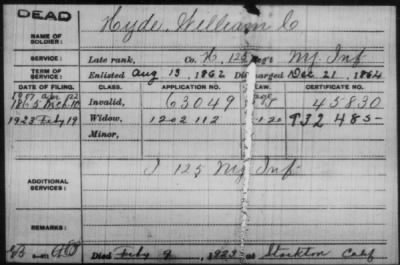 DEAD
Hyde, William C
NAME OF SOLDIER:
SERVICE: Late rank, Co. H, 125 Reg't N.Y. Inf
TERM OF SERVICE: Enlisted Aug 13, 1862 Discharged Dec 21, 1864
DATE OF FILING. CLASS. APPLICATION NO. LAW. CERTIFICATE NO.
1865 Mch 10 Invalid, 63049 45830
1923 Feby 19 Widow, 1202112 932485-
Minor,
ADDITIONAL SERVICES: I 125 NY Inf
REMARKS:
Died Feby 9, 1923 at Stockton Calf